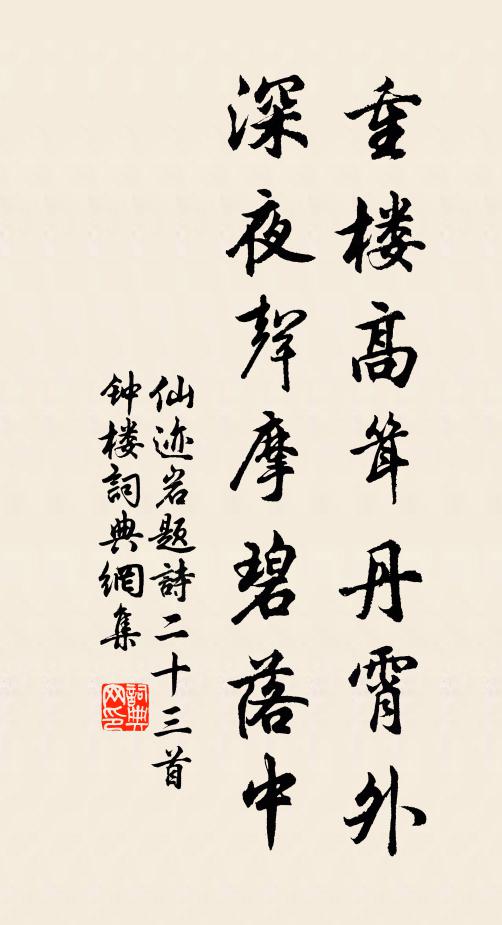 重楼高耸丹霄外
深夜聲摩碧落中
仙迹岩题詩二十三首
钟楼詞典網集
詞典网印